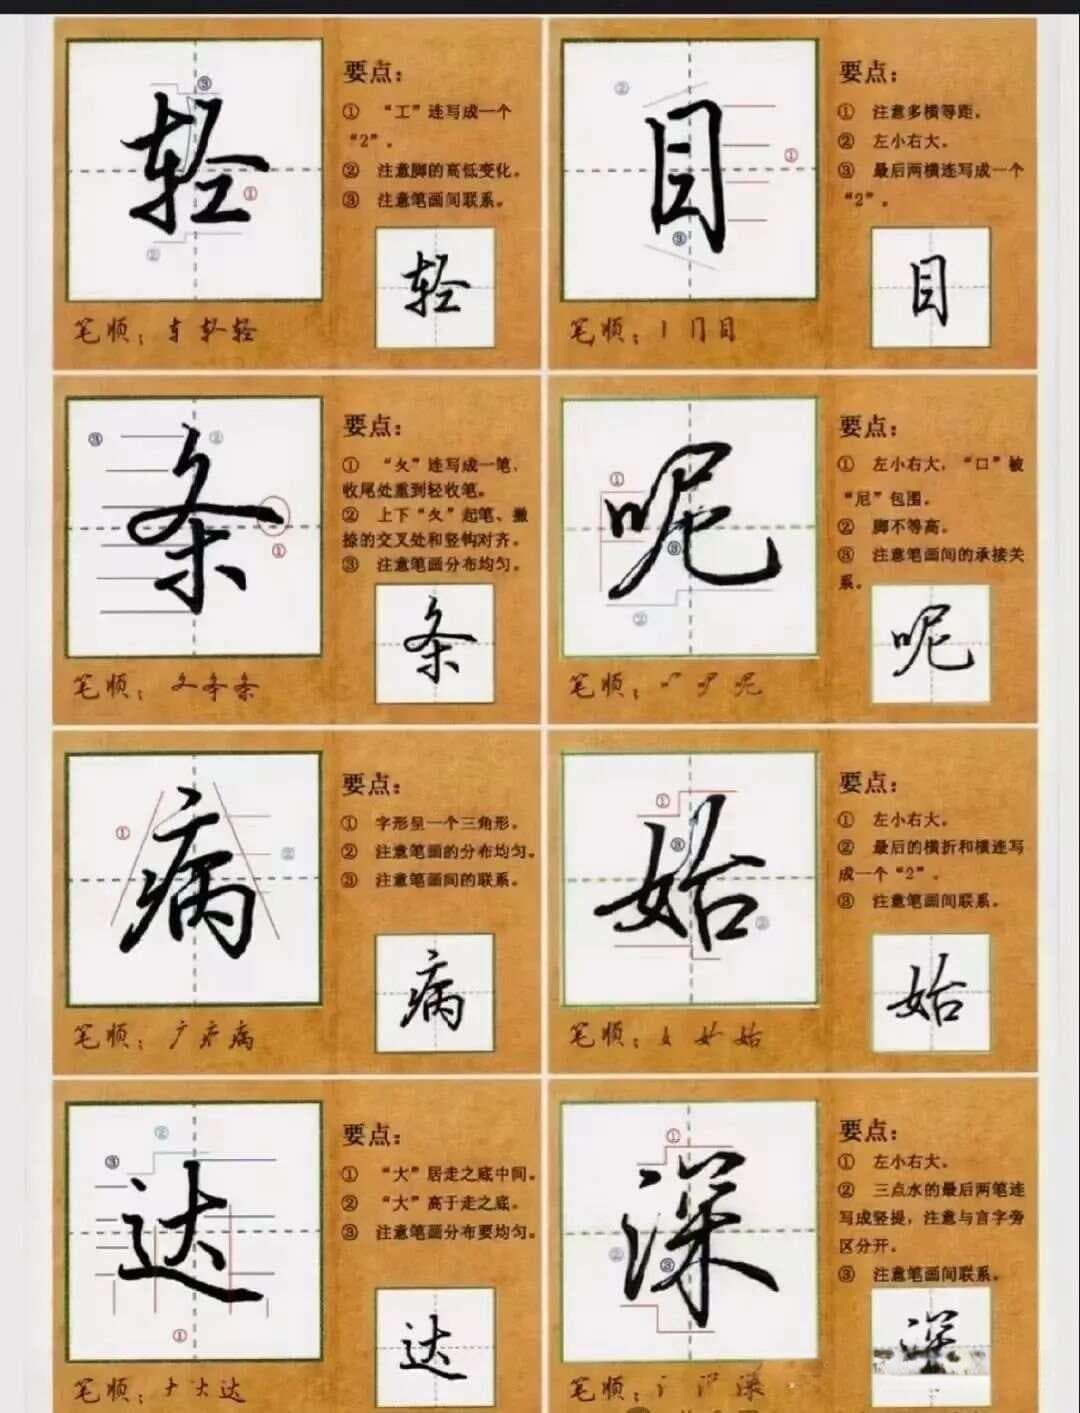 轻
要点：
① “工”连写成一个
“2”。
② 注意脚的高低变化。
③ 注意笔画间联系。
③
①
②
轻
笔顺：
轻
目
要点：
① 注意多横等距。
② 左小右大。
③ 最后两横连写成一个
“2”。
②
①
③
目
笔顺：丨冂目
条
要点：
① “夂”连写成一笔，
收尾处重到轻收笔。
② 上下“夂”起笔、撇
捺的交叉处和竖钩对齐。
③ 注意笔画分布均匀。
③
②
①
条
笔顺：夂条条
呢
要点：
① 左小右大，“口”被
“尼”包围。
② 脚不等高。
③ 注意笔画间的承接关
系。
①
③
②
呢
笔顺：
呢
病
要点：
① 字形呈一个三角形。
② 注意笔画的分布均匀。
③ 注意笔画间的联系。
①
②
病
笔顺：
病
始
要点：
① 左小右大。
② 最后的横折和横连写
成一个“2”。
③ 注意笔画间联系。
①
③
②
始
笔顺：
始
达
要点：
① “大”居走之底中间。
② “大”高于走之底。
③ 注意笔画分布要均匀。
②
③
①
达
笔顺：ナ大达
深
要点：
① 左小右大。
② 三点水的最后两笔连
写成竖提，注意与言字旁
区分开。
③ 注意笔画间联系。
①
②
③
深
笔顺：
深